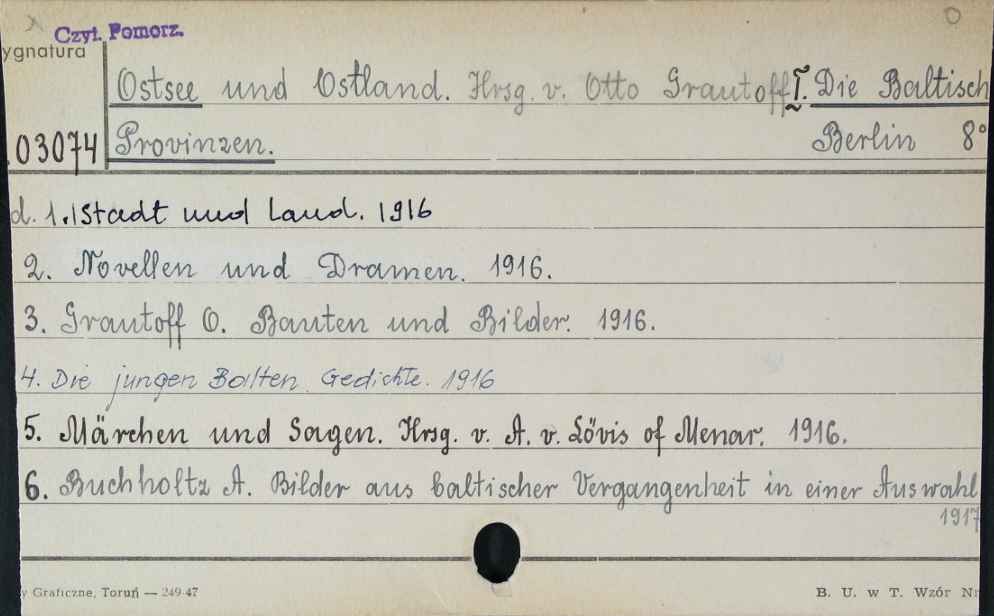 Czyt. Pomorz.
ygnatura
Ostsee und Ostland. Hrsg. v. Otto Grautoff I. Die Baltisch
03074 Provinzen. Berlin 8°
d. 1. Stadt und Land. 1916
2. Novellen und Dramen. 1916.
3. Grautoff O. Bauten und Bilder. 1916.
4. Die jungen Balten. Gedichte. 1916
5. Märchen und Sagen. Hrsg. v. A. v. Lövis of Menar. 1916.
6. Buchholtz A. Bilder aus baltischer Vergangenheit in einer Auswahl
1917
y Graficzne, Toruń — 249-47 B. U. w T. Wzór Nr